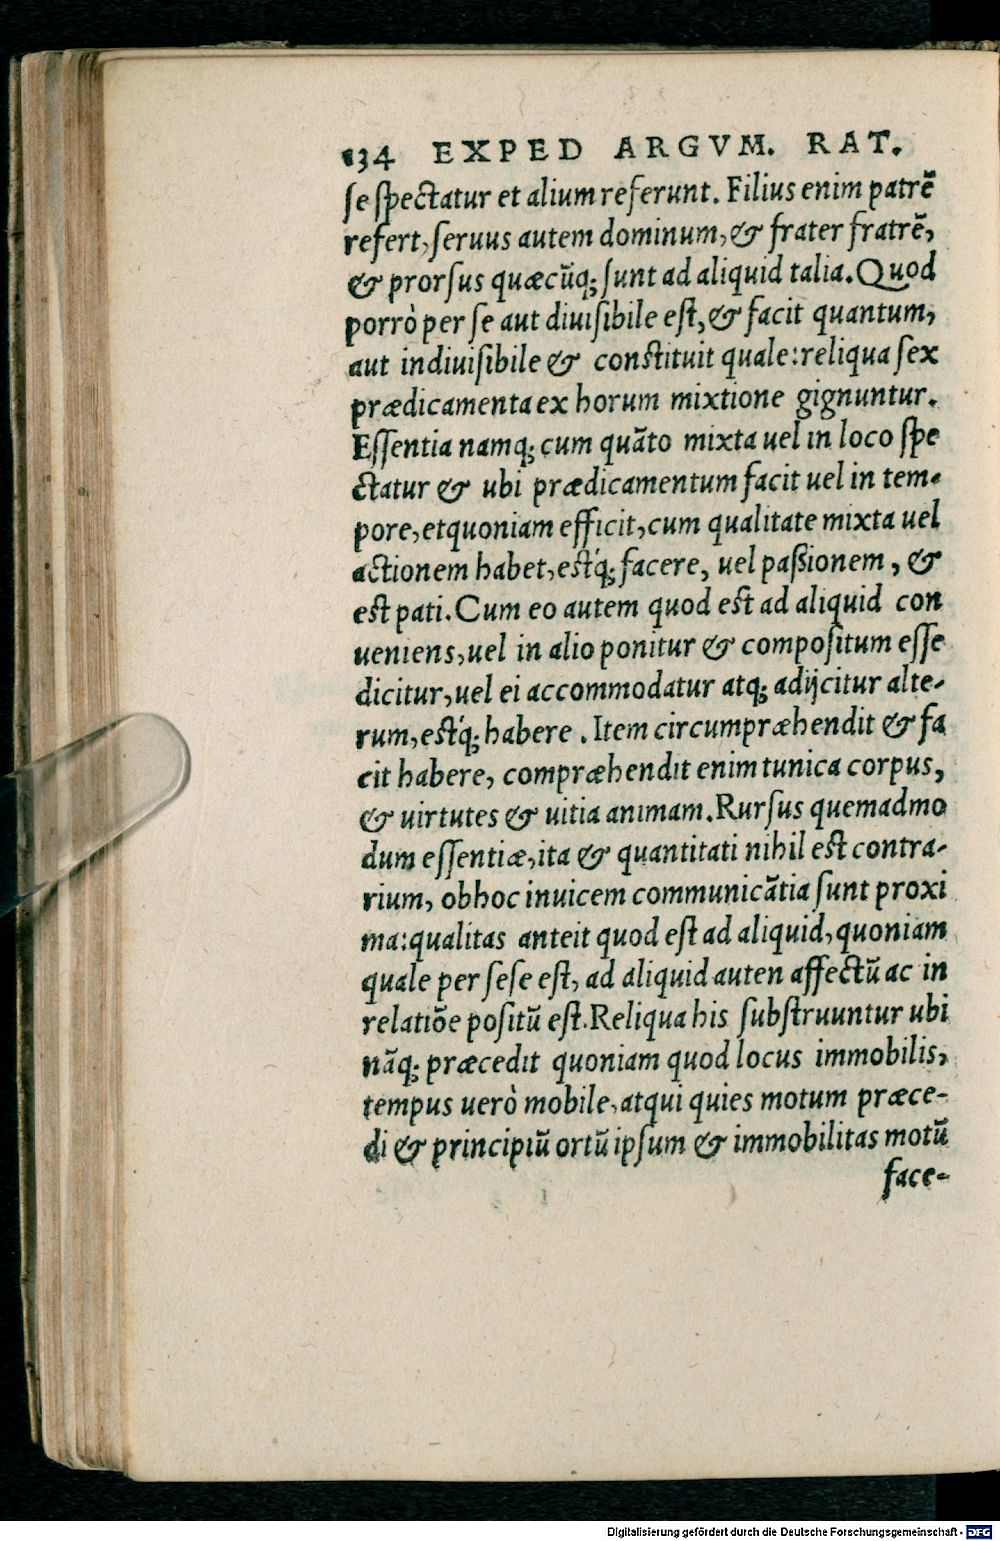 134 EXPED ARGVM. RAT.
se spectatur et alium referunt. Filius enim patrẽ
refert, seruus autem dominum, & frater fratrẽ,
& prorsus quæcũq; sunt ad aliquid talia. Quod
porrò per se aut diuisibile est, & facit quantum,
aut indiuisibile & constituit quale: reliqua sex
prædicamenta ex horum mixtione gignuntur.
Essentia namq; cum quãto mixta uel in loco spe
ctatur & ubi prædicamentum facit uel in tem-
pore, etquoniam efficit, cum qualitate mixta uel
actionem habet, estq́; facere, uel passionem, &
est pati. Cum eo autem quod est ad aliquid con
ueniens, uel in alio ponitur & compositum esse
dicitur, uel ei accommodatur atq; adijcitur alte-
rum, estq́; habere. Item circumpræhendit & fa
cit habere, compræhendit enim tunica corpus,
& uirtutes & uitia animam. Rursus quemadmo
dum essentiæ, ita & quantitati nihil est contra-
rium, obhoc inuicem communicãtia sunt proxi
ma: qualitas anteit quod est ad aliquid, quoniam
quale per sese est, ad aliquid auten affectũ ac in
relatiõe positũ est. Reliqua his substruuntur ubi
nãq; præcedit quoniam quod locus immobilis,
tempus uerò mobile, atqui quies motum præce-
di & principiũ ortũ ipsum & immobilitas motũ
face-
Digitalisierung gefördert durch die Deutsche Forschungsgemeinschaft - DFG